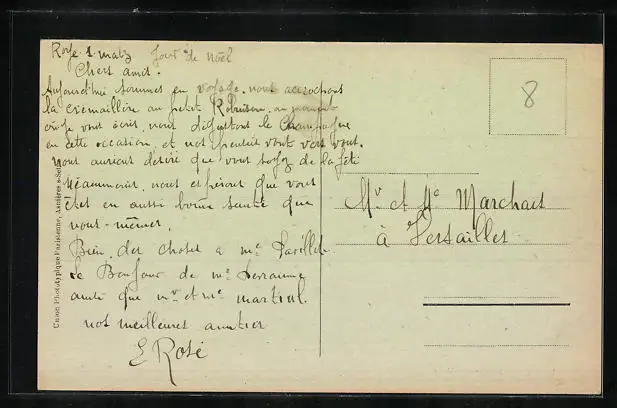 Roye 1 matz Jour de noël
Chers amis.
Aujourd'hui sommes en voyage. nous accrochons
la crémaillère au petit Robinson. au moment
où je vous écris, nous dégustons le Champagne
en cette occasion, et nos pensées vont vers vous.
nous aurions désiré que vous soyez de la fête
Néanmoins, nous espérons que vous
êtes en aussi bonne santé que
nous-mêmes.
Bien des choses a me
Le Bonjour de me
ainsi que mr et me martial
nos meilleures amitiés
E Rosé
8
Mr et Me Marchais
à Versailles
Union Phototypique Parisienne, Asnières s-Seine